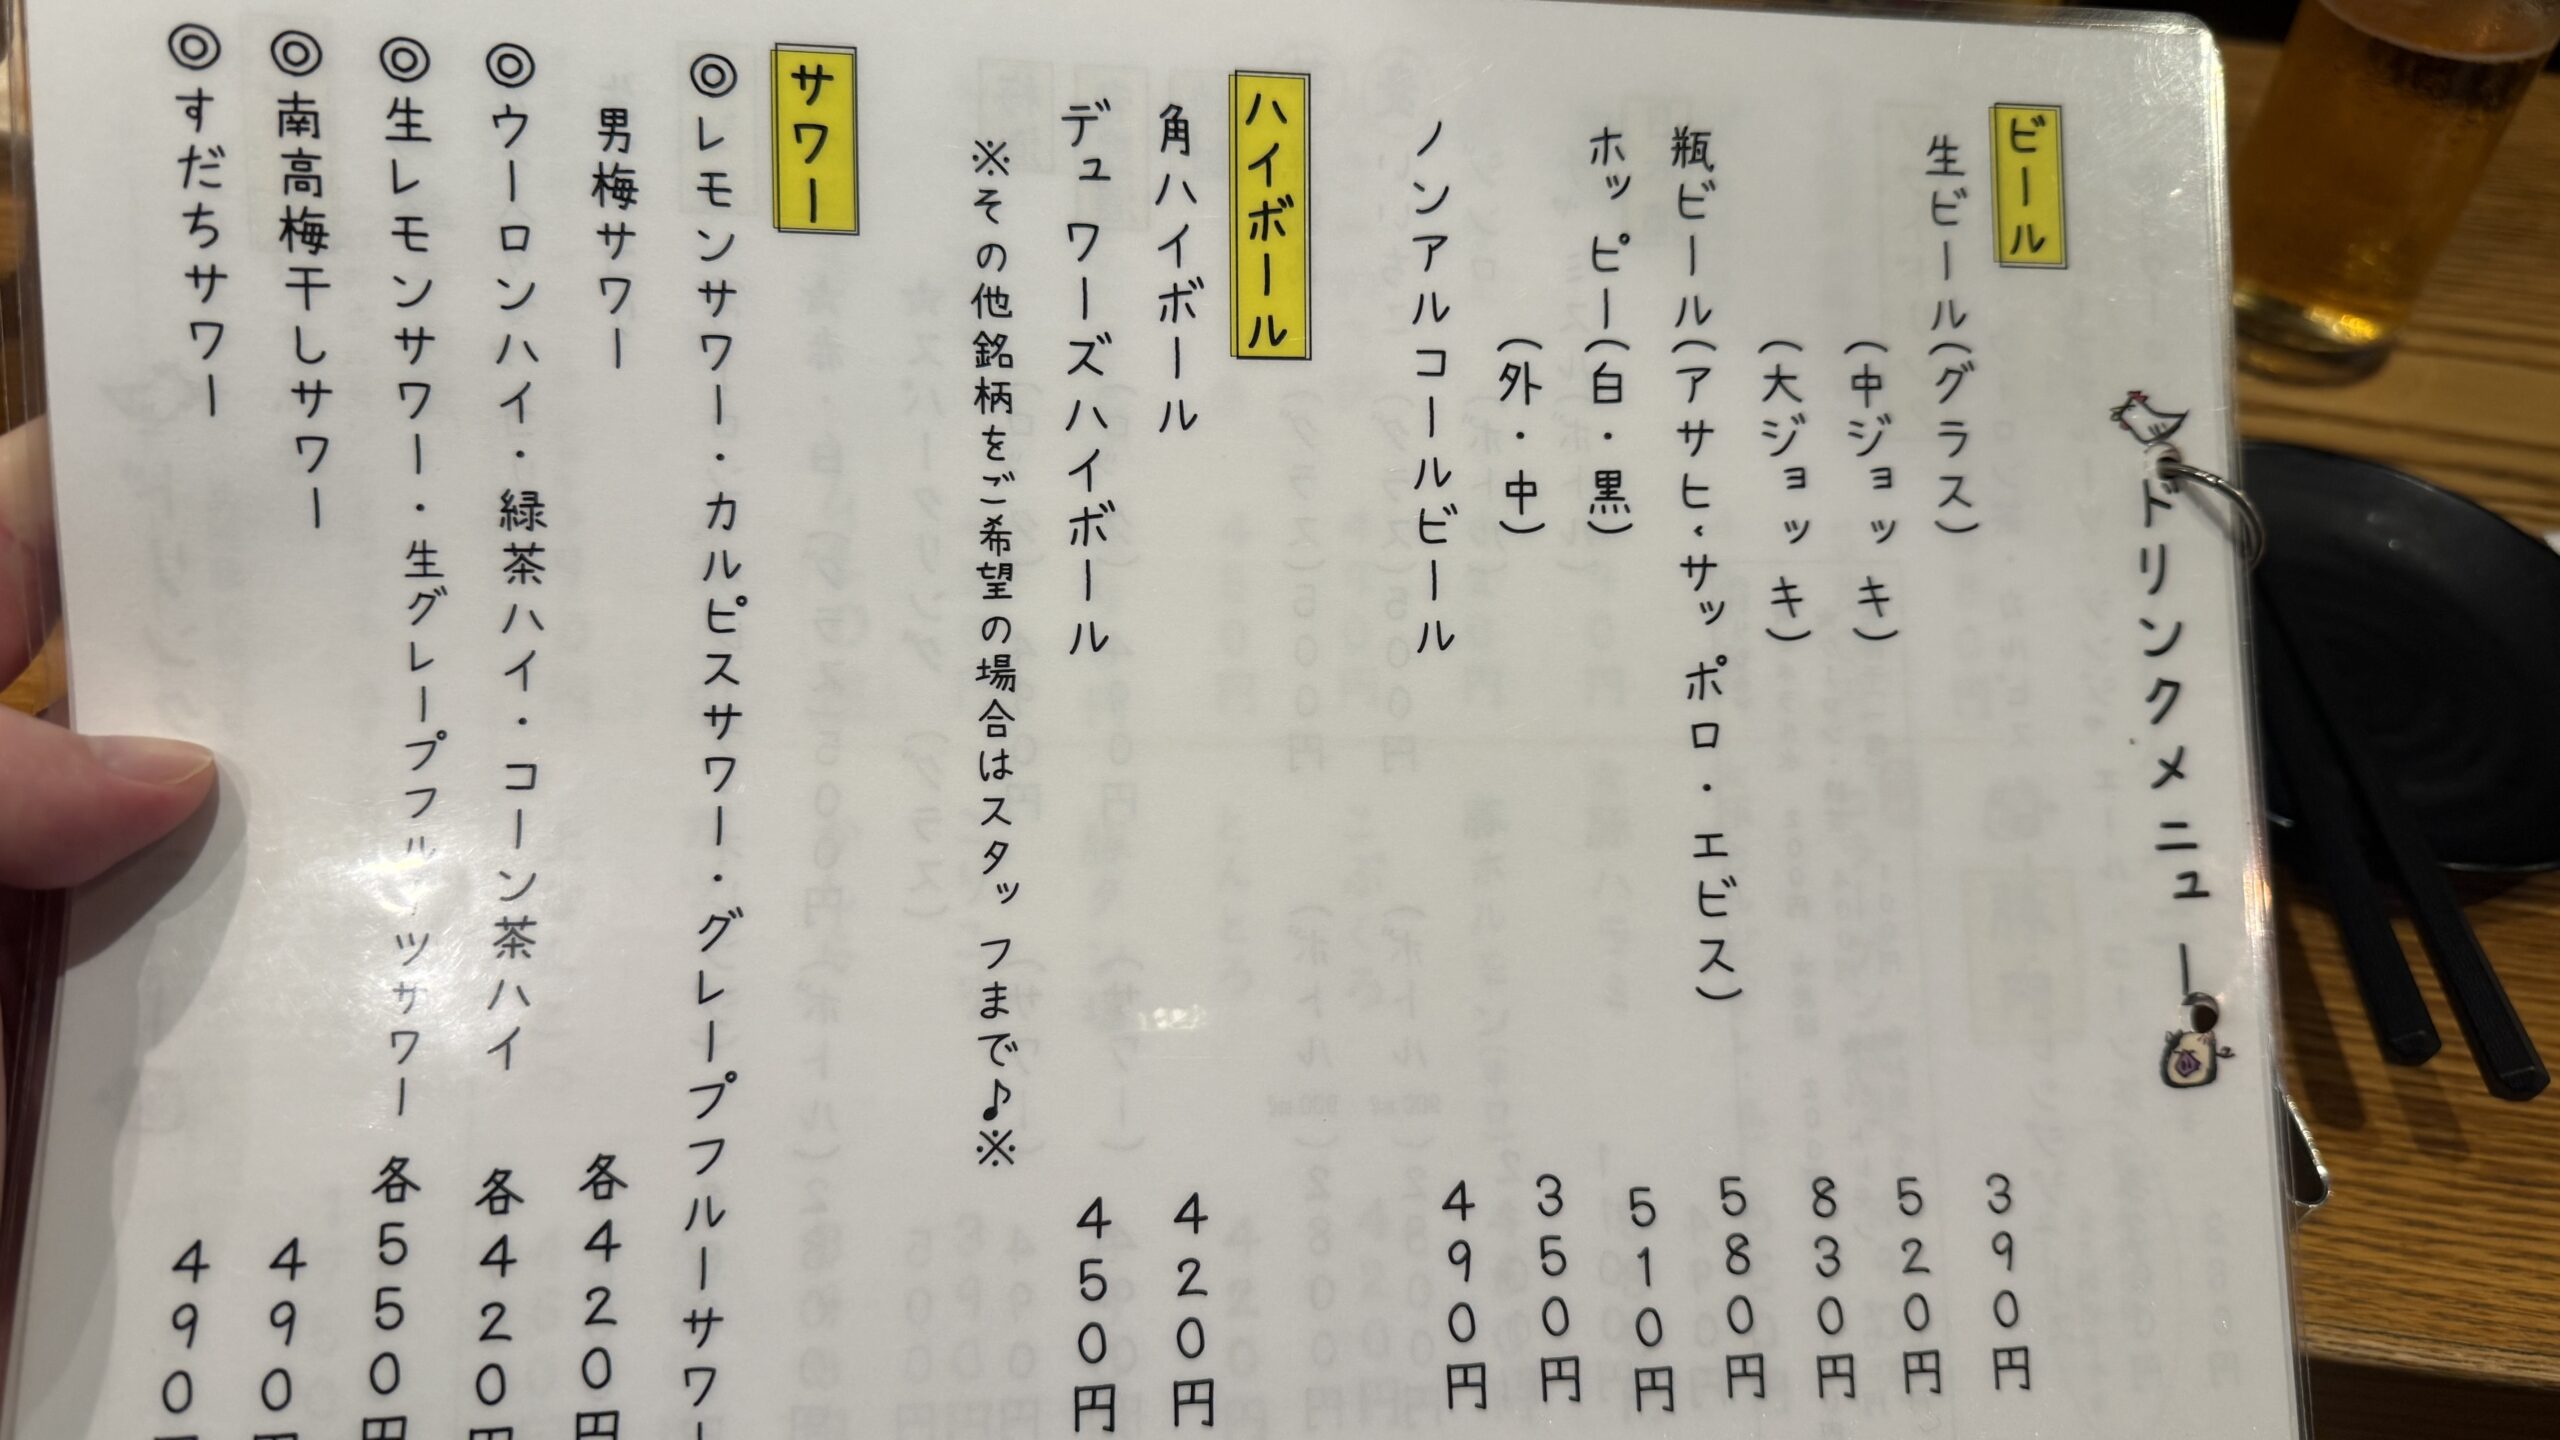 ドリンクメニュー
ビール
生ビール(グラス) 390円
(中ジョッキ) 520円
(大ジョッキ) 830円
瓶ビール(アサヒ、サッポロ・エビス) 580円
ホッピー(白・黒) 510円
(外・中) 350円
ノンアルコールビール 490円
ハイボール
角ハイボール 420円
デュワーズハイボール 450円
※その他銘柄をご希望の場合はスタッフまで♪※
サワー
◎レモンサワー・カルピスサワー・グレープフルーサワー
男梅サワー 各420円
◎ウーロンハイ・緑茶ハイ・コーン茶ハイ 各420円
◎生レモンサワー・生グレープフルーツサワー 各550円
◎南高梅干しサワー 490円
◎すだちサワー 490円